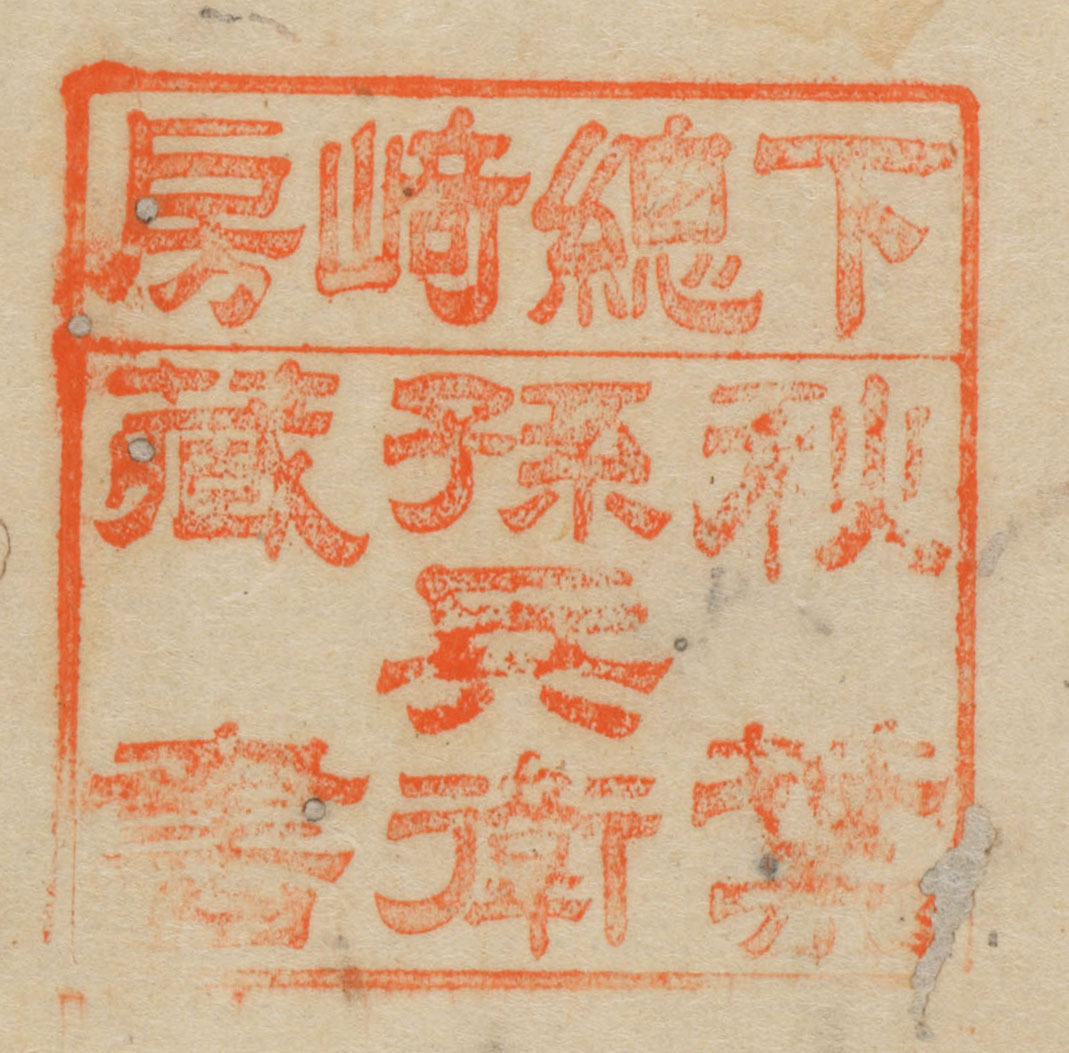 下總﨑房
秋葉
孫兵衛
藏書